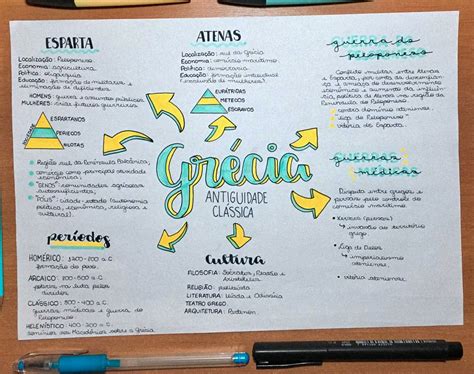 ESPARTA
Localização: Peloponeso
Economia: agricultura
Política: oligarquia
Educação: formação de militares e
eliminação de deficientes
HOMENS: guerra e assuntos públicos
MULHERES:
ESPARTANOS
PERIECOS
HILOTAS
ATENAS
Localização: sul da Grécia
Economia: comércio marítimo
Política: democracia
Educação: formação intelectual
(exclusão de mulheres)
EUPÁTRIDAS
METECOS
ESCRAVOS
guerra do
peloponeso
Conflito militar entre Atenas
e Esparta,
econômico e aumento da influência
política de Atenas na região da
Península do Peloponeso
contra domínio ateniense
"Liga do Peloponeso"
vitória de Esparta
Grécia
ANTIGUIDADE
CLÁSSICA
Região sul da Península Balcânica;
comércio como principal atividade
econômica;
"GENOS": comunidades agrícolas
autossuficientes;
"PÓLIS": cidade-estado (autonomia
política, econômica, religiosa e
cultural).
guerras
médicas
Disputa entre gregos e
persas pelo controle do
comércio marítimo
Xerxes (persas)
invasão do território
grego
Liga de Delos
imperialismo
ateniense
vitória ateniense
períodos
HOMÉRICO:
formação do povo.
ARCAICO: 800 - 500 a.C
CLÁSSICO: 500 - 400 a.C
guerras médicas e guerra do
Peloponeso
HELENÍSTICO: 400 - 200 a.C
domínio da Macedônia sobre a Grécia.
Cultura
FILOSOFIA: Sócrates, Platão e
Aristóteles
RELIGIÃO: politeísta
LITERATURA: Ilíada e Odisseia
TEATRO GREGO
ARQUITETURA: Partenon